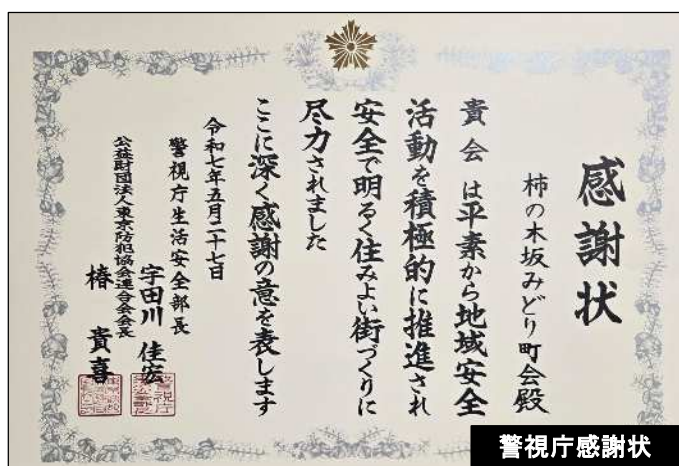 感謝状
柿の木坂みどり町会殿
貴会は平素から地域安全
活動を積極的に推進され
安全で明るく住みよい街づくりに
尽力されました
ここに深く感謝の意を表します
令和七年五月二十七日
警視庁生活安全部長
宇田川佳宏
公益財団法人東京防犯協会連合会会長
椿貴喜
警視庁感謝状